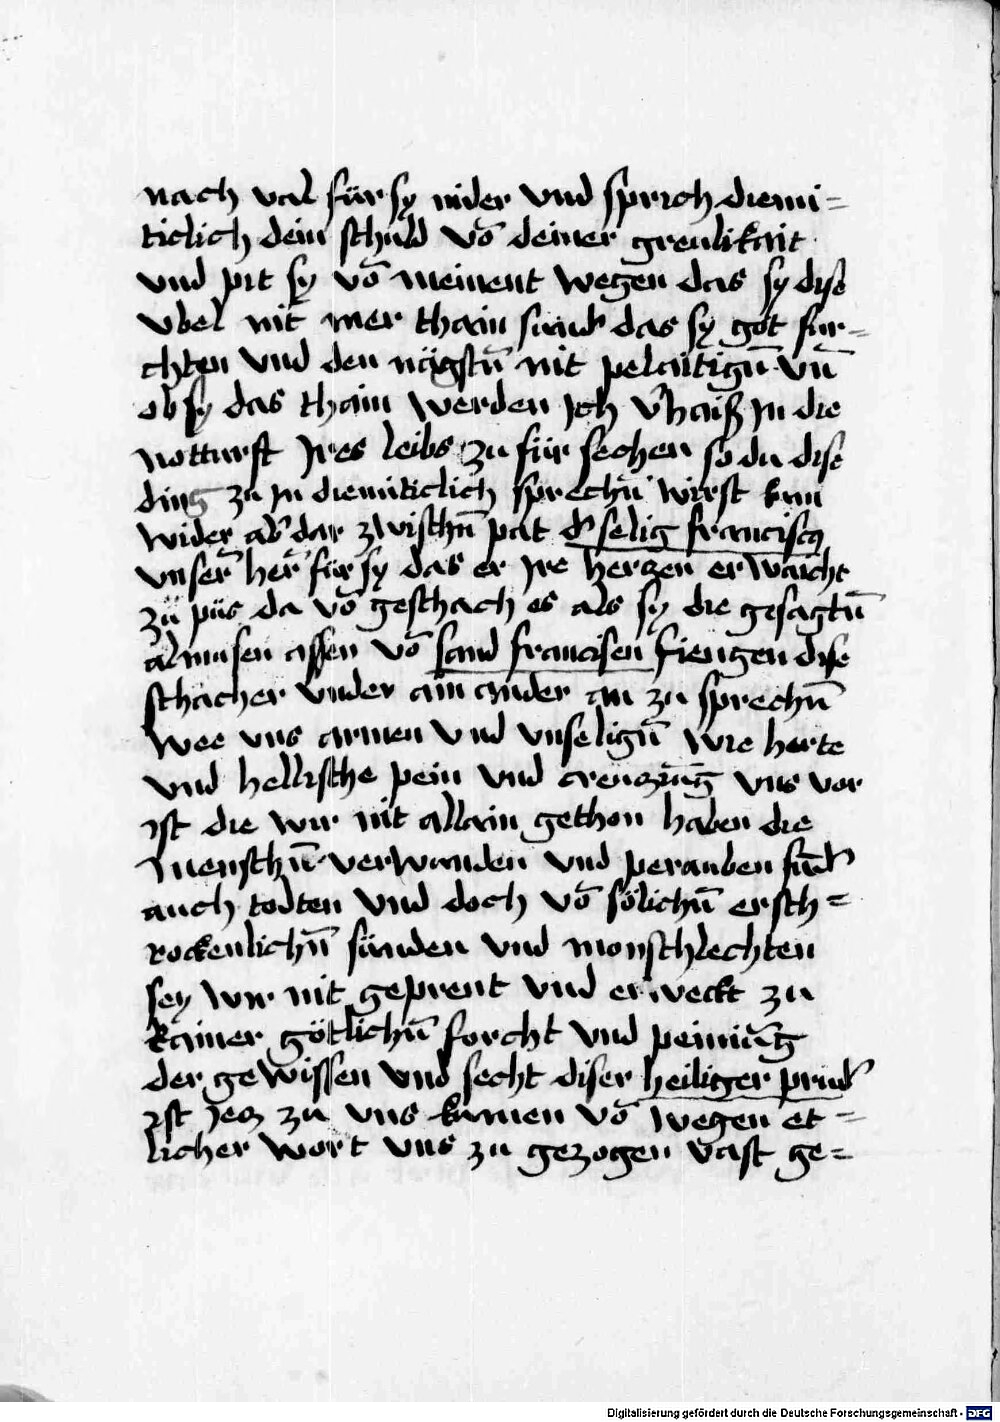 nach val für sy nider vnd sprich diemi=
ticlich dein schuld vō deiner greulikait
vnd pit sy vō meinent wegen das sy dise
vbel nit mer thain sundˀ das sy got fur=
chten vnd den nägstn̄ nit pelaitign̄ vn̄
ob sy das thain werden Ich vˀhaiß In die
notturft Ires leibs zu für sechen so du dise
ding zu In diemiticlich sprechn̄ wirst kum
wider abˀ dar zwischn̄ pat dˀ selig francisco
vnserˀ herˀ für sy das er Ire herzen erwaicht
zü püs da vō geschach es als sy die gesagtn̄
almusen assen vō sand francisen fiengen dise
schacher vnder ain ander an zu sprechn̄
wee vns armen vnd vnselign̄ wie herte
vnd hellische pein vnd creuzūg vns vor
ist die wir nit allain gethon haben die
menschn̄ verwunden vnd perauben sūdˀ
auch todten vnd doch vō sölichn̄ ersch=
rockenlichn̄ sünden vnd monschlechten
sey wir nit geprent vnd erweckt zu
kainer götlichn̄ forcht vnd peiniūg
der gewissen vnd secht diser heiliger prudˀ
ist Iez zu vns kumen vō wegen et=
licher wort vns zu gezogen vast ge=
Digitalisierung gefördert durch die Deutsche Forschungsgemeinschaft - DFG